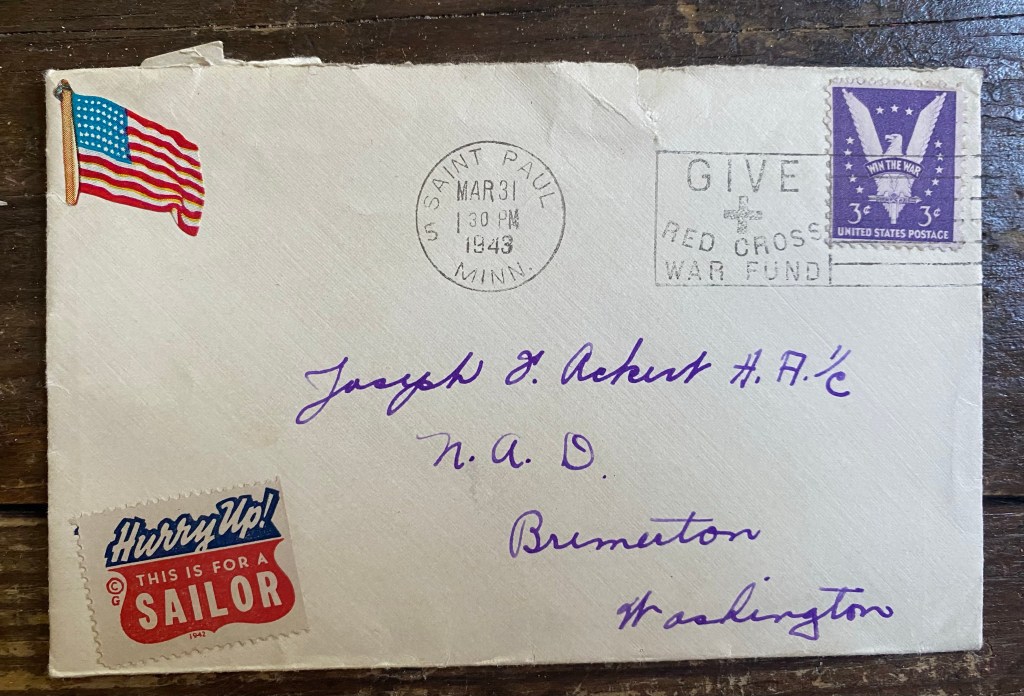 SAINT PAUL
5
MAR 31
1 30 PM
1943
MINN.
GIVE
RED CROSS
WAR FUND
WIN THE WAR
3¢ 3¢
UNITED STATES POSTAGE
Joseph F. Ackert H. A. 1/c
N. A. D.
Bremerton
Washington
Hurry Up!
THIS IS FOR A
SAILOR
© G
1942